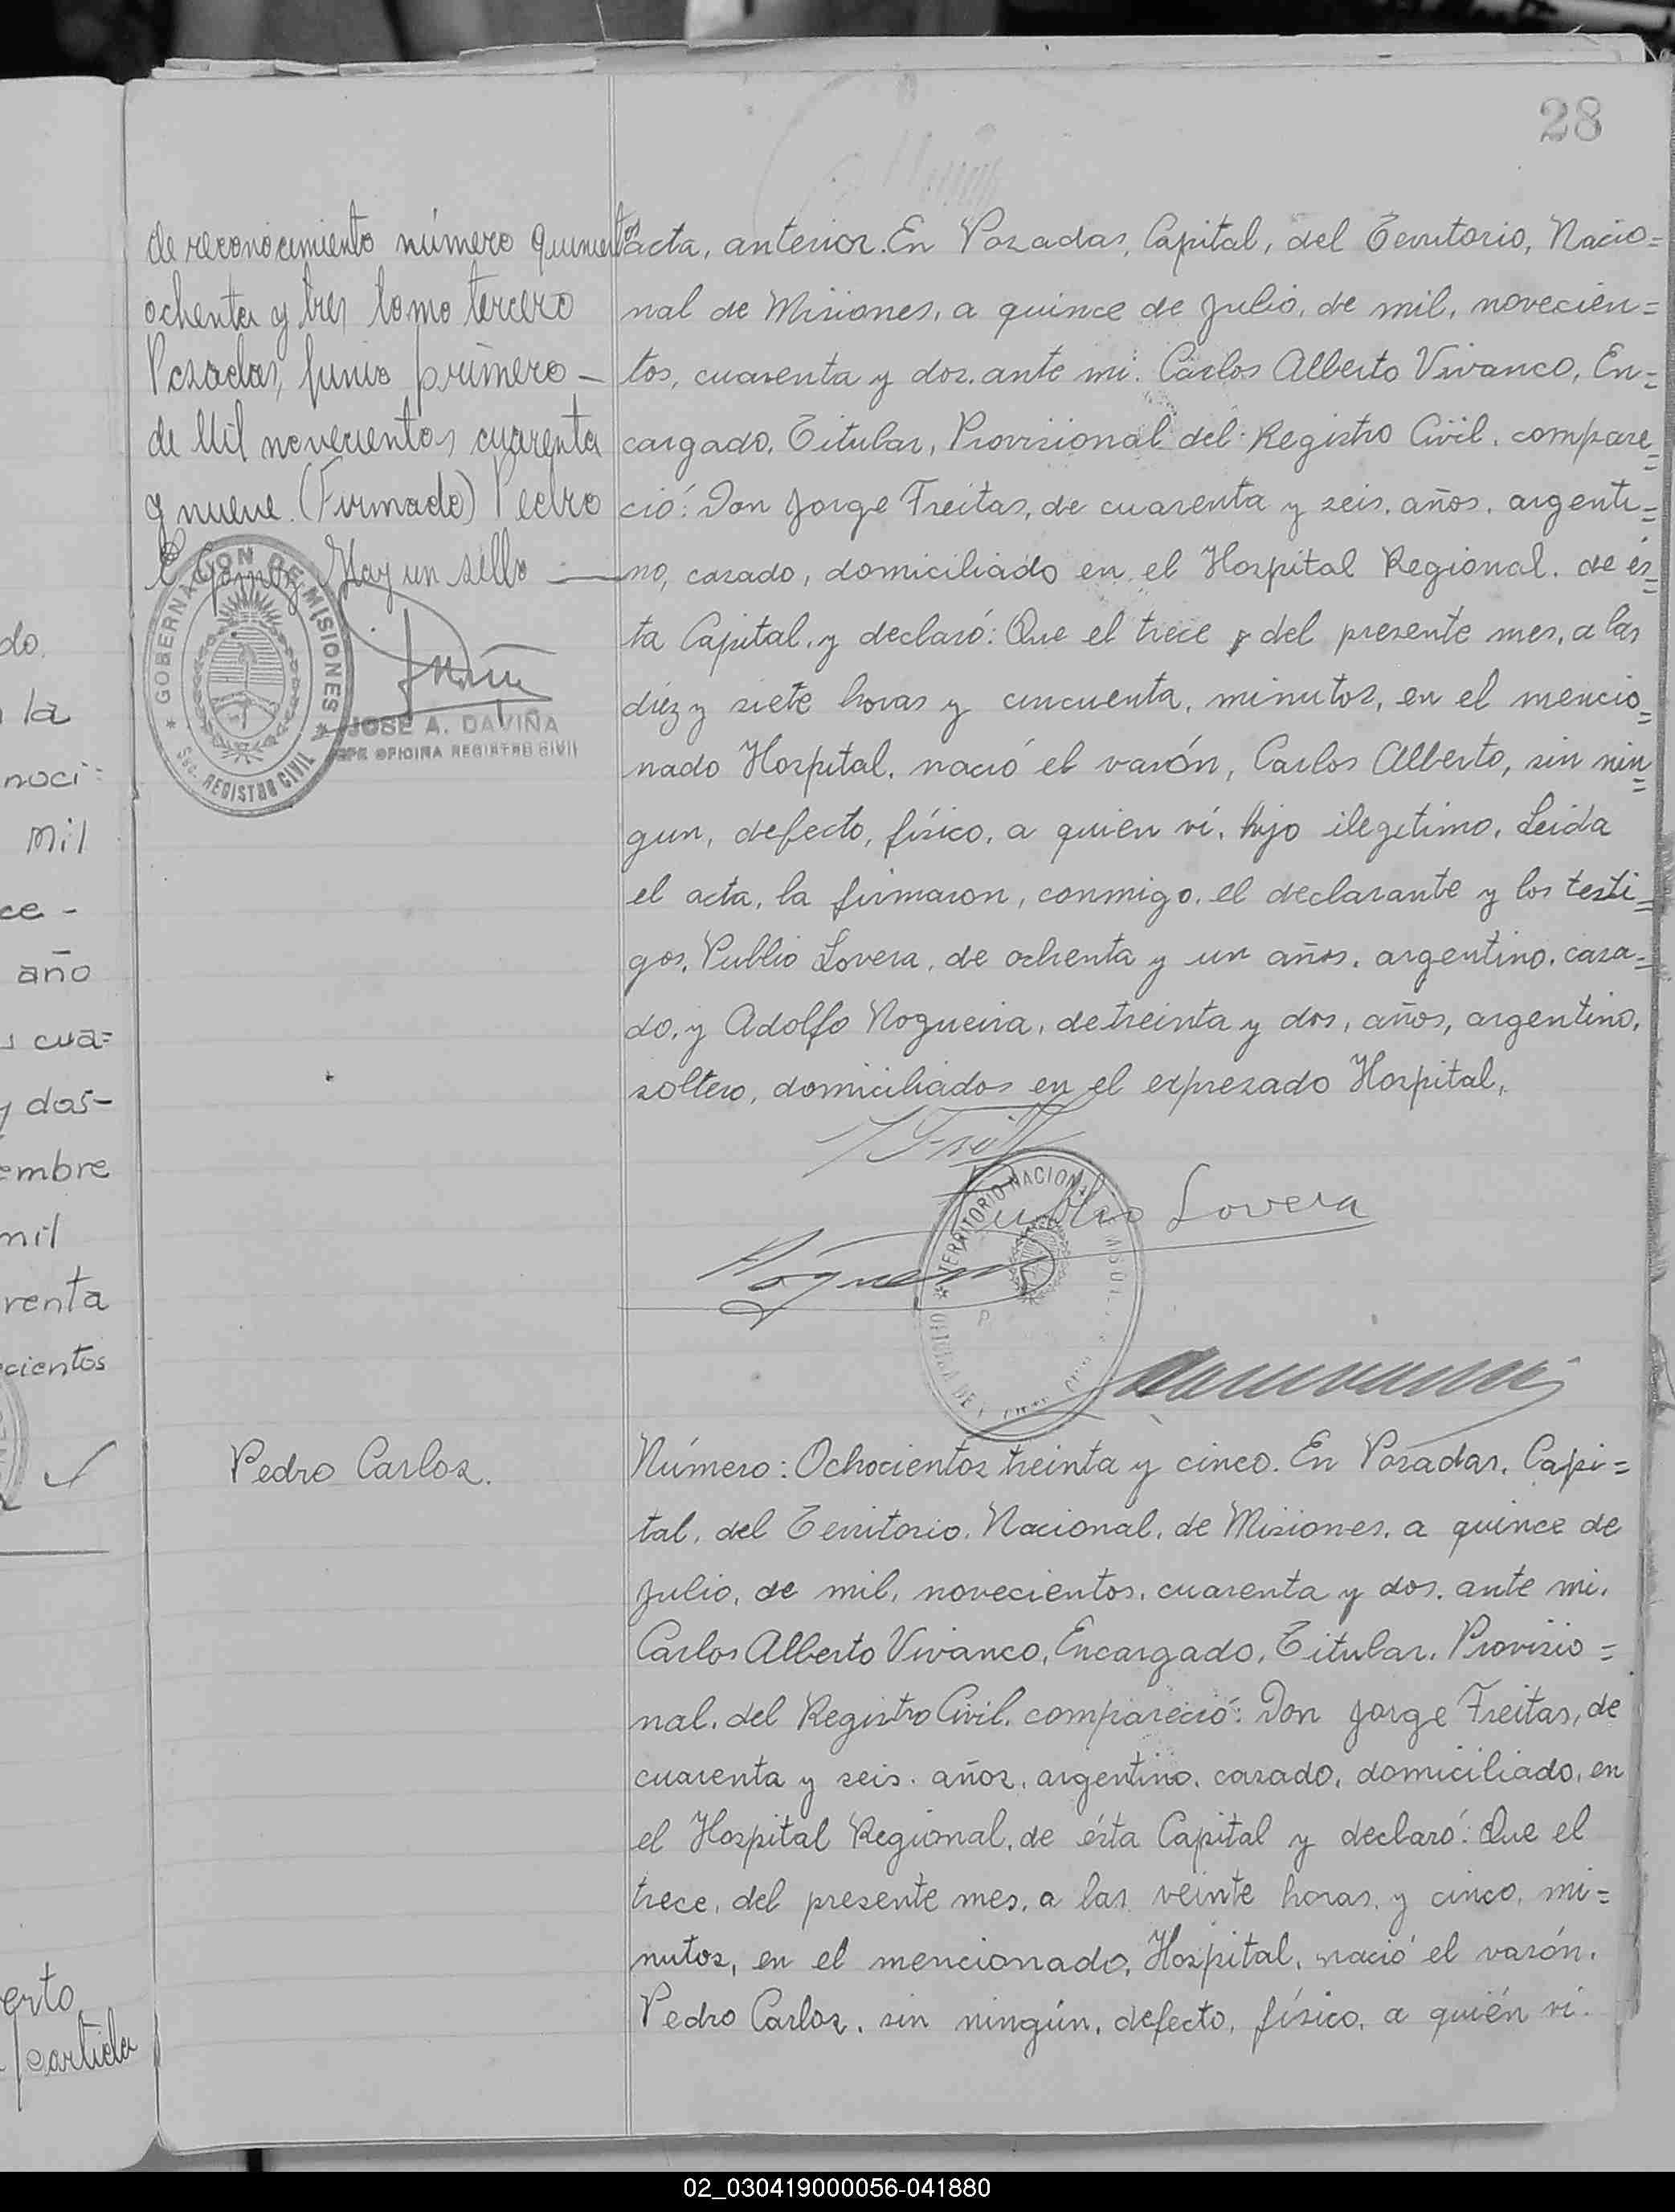 28
de reconocimiento número quinientos
ochenta y tres tomo tercero
Posadas, Junio primero —
de Mil novecientos cuarenta
y nueve. (Firmado) Pedro
Hay un sello —
GOBERNACION DE MISIONES
Sec. REGISTRO CIVIL
JOSE A. DAVIÑA
JEFE OFICINA REGISTRO CIVIL
acta, anterior. En Posadas, Capital, del Territorio, Nacio=
nal de Misiones, a quince de Julio, de mil, novecien=
tos, cuarenta y dos. ante mi: Carlos Alberto Vivanco, En=
cargado, Titular, Provisional del Registro Civil, compare=
ció: Don Jorge Freitas, de cuarenta y seis, años, argenti=
no, casado, domiciliado en el Hospital Regional. de és=
ta Capital, y declaró: Que el trece del presente mes, a las
diez y siete horas y cincuenta, minutos, en el mencio=
nado Hospital, nació el varón, Carlos Alberto, sin nin=
gun, defecto, físico, a quien ví, hijo ilegitimo, Leida
el acta, la firmaron, conmigo, el declarante y los testi=
gos, Publio Lovera, de ochenta y un años, argentino, casa=
do, y Adolfo Nogueira, de treinta y dos, años, argentino,
soltero, domiciliados en el expresado Hospital,
Publio Lovera
TERRITORIO NACIONAL
Pedro Carlos.
Número: Ochocientos treinta y cinco. En Posadas, Capi=
tal, del Territorio, Nacional, de Misiones, a quince de
Julio, de mil, novecientos, cuarenta y dos. ante mi.
Carlos Alberto Vivanco, Encargado, Titular, Provisio=
nal, del Registro Civil, compareció: Don Jorge Freitas, de
cuarenta y seis. años, argentino, casado, domiciliado, en
el Hospital Regional, de ésta Capital y declaró: Que el
trece, del presente mes, a las veinte horas, y cinco, mi=
nutos, en el mencionado, Hospital, nació el varón,
Pedro Carlos, sin ningún, defecto, físico, a quién ví.
do.
la
noci=
mil
ce -
año
cua=
y dos-
embre
mil
renta
cientos
erto
partida
02_030419000056-041880